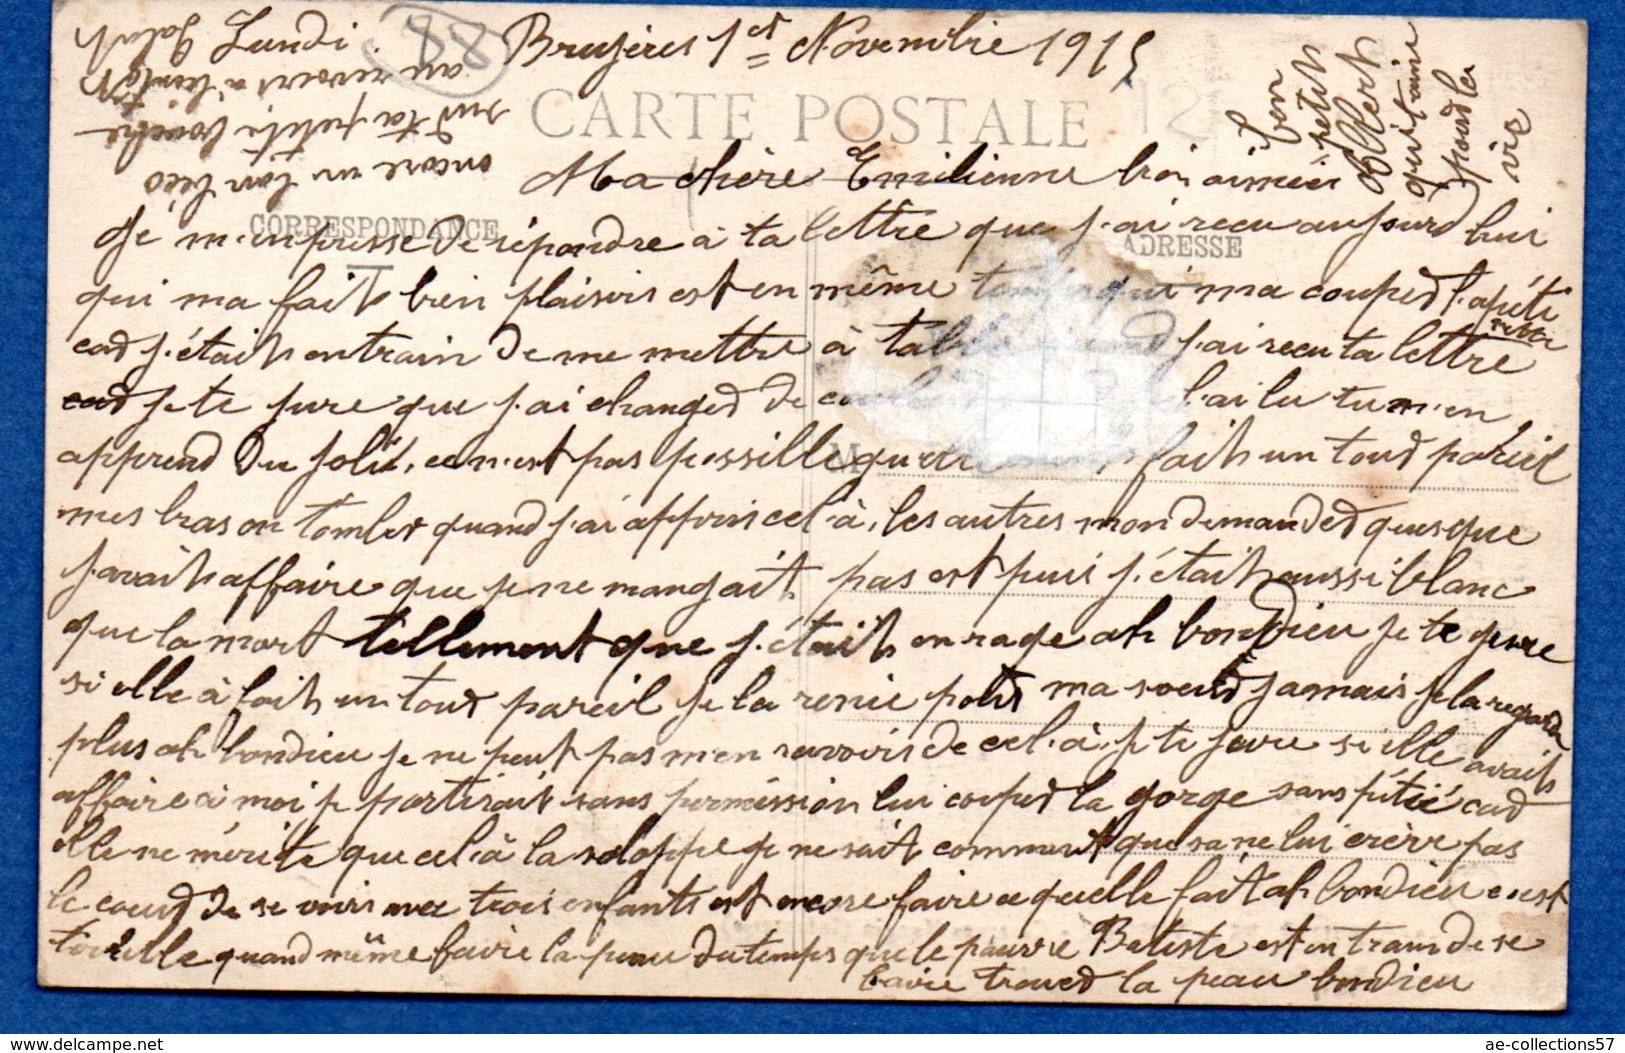 Lundi
88
Bruyères 1er Novembre 1915
CARTE POSTALE
Ma chère Emilienne bien aimée
CORRESPONDANCE
ADRESSE
Je m'empresse de répondre à ta lettre que j'ai recu aujourd hui
qui ma fait bien plaisir est en même temps qui ma couped l'apéti
cad j'était entrain de me mettre à table quand j'ai recu ta lettre
cad je te jure que j'ai changed de l'ai lu tu m'en
apprend du joli, ce n'est pas possible qu'elle fait un tour pareil
mes bras on tomber quand j'ai appris cel-à, les autres mon demanded quesque
j'avait affaire que je ne mangait pas est puis j'était aussi blanc
que la mort tellement que j'étais enrage ah bondieu je te jure
si elle à fait un tour pareil je la renie pour ma soeurd jamais je la regarde
plus ah bondieu je ne peut pas m'en ravoir de cel-à, je te jure si elle avait
affaire à moi je partirait sans permission lui couped la gorge sans pitié cad
elle ne mérite que cel-à la saloppe je ne sait comment que sa ne lui crève pas
le coeurd de se voir avec trois enfants est encore faire ce quelle fait ah bondieu c'est
quand même faire la peau du temps que le pauvre Batiste est en train de se
faire troued la peau bondieu
ton petit
Albert
qui t'aime
pourd la
vie
encore un bon béco
sur ta petite bouche
au revoir à bientôt
Galub
ae-collections57